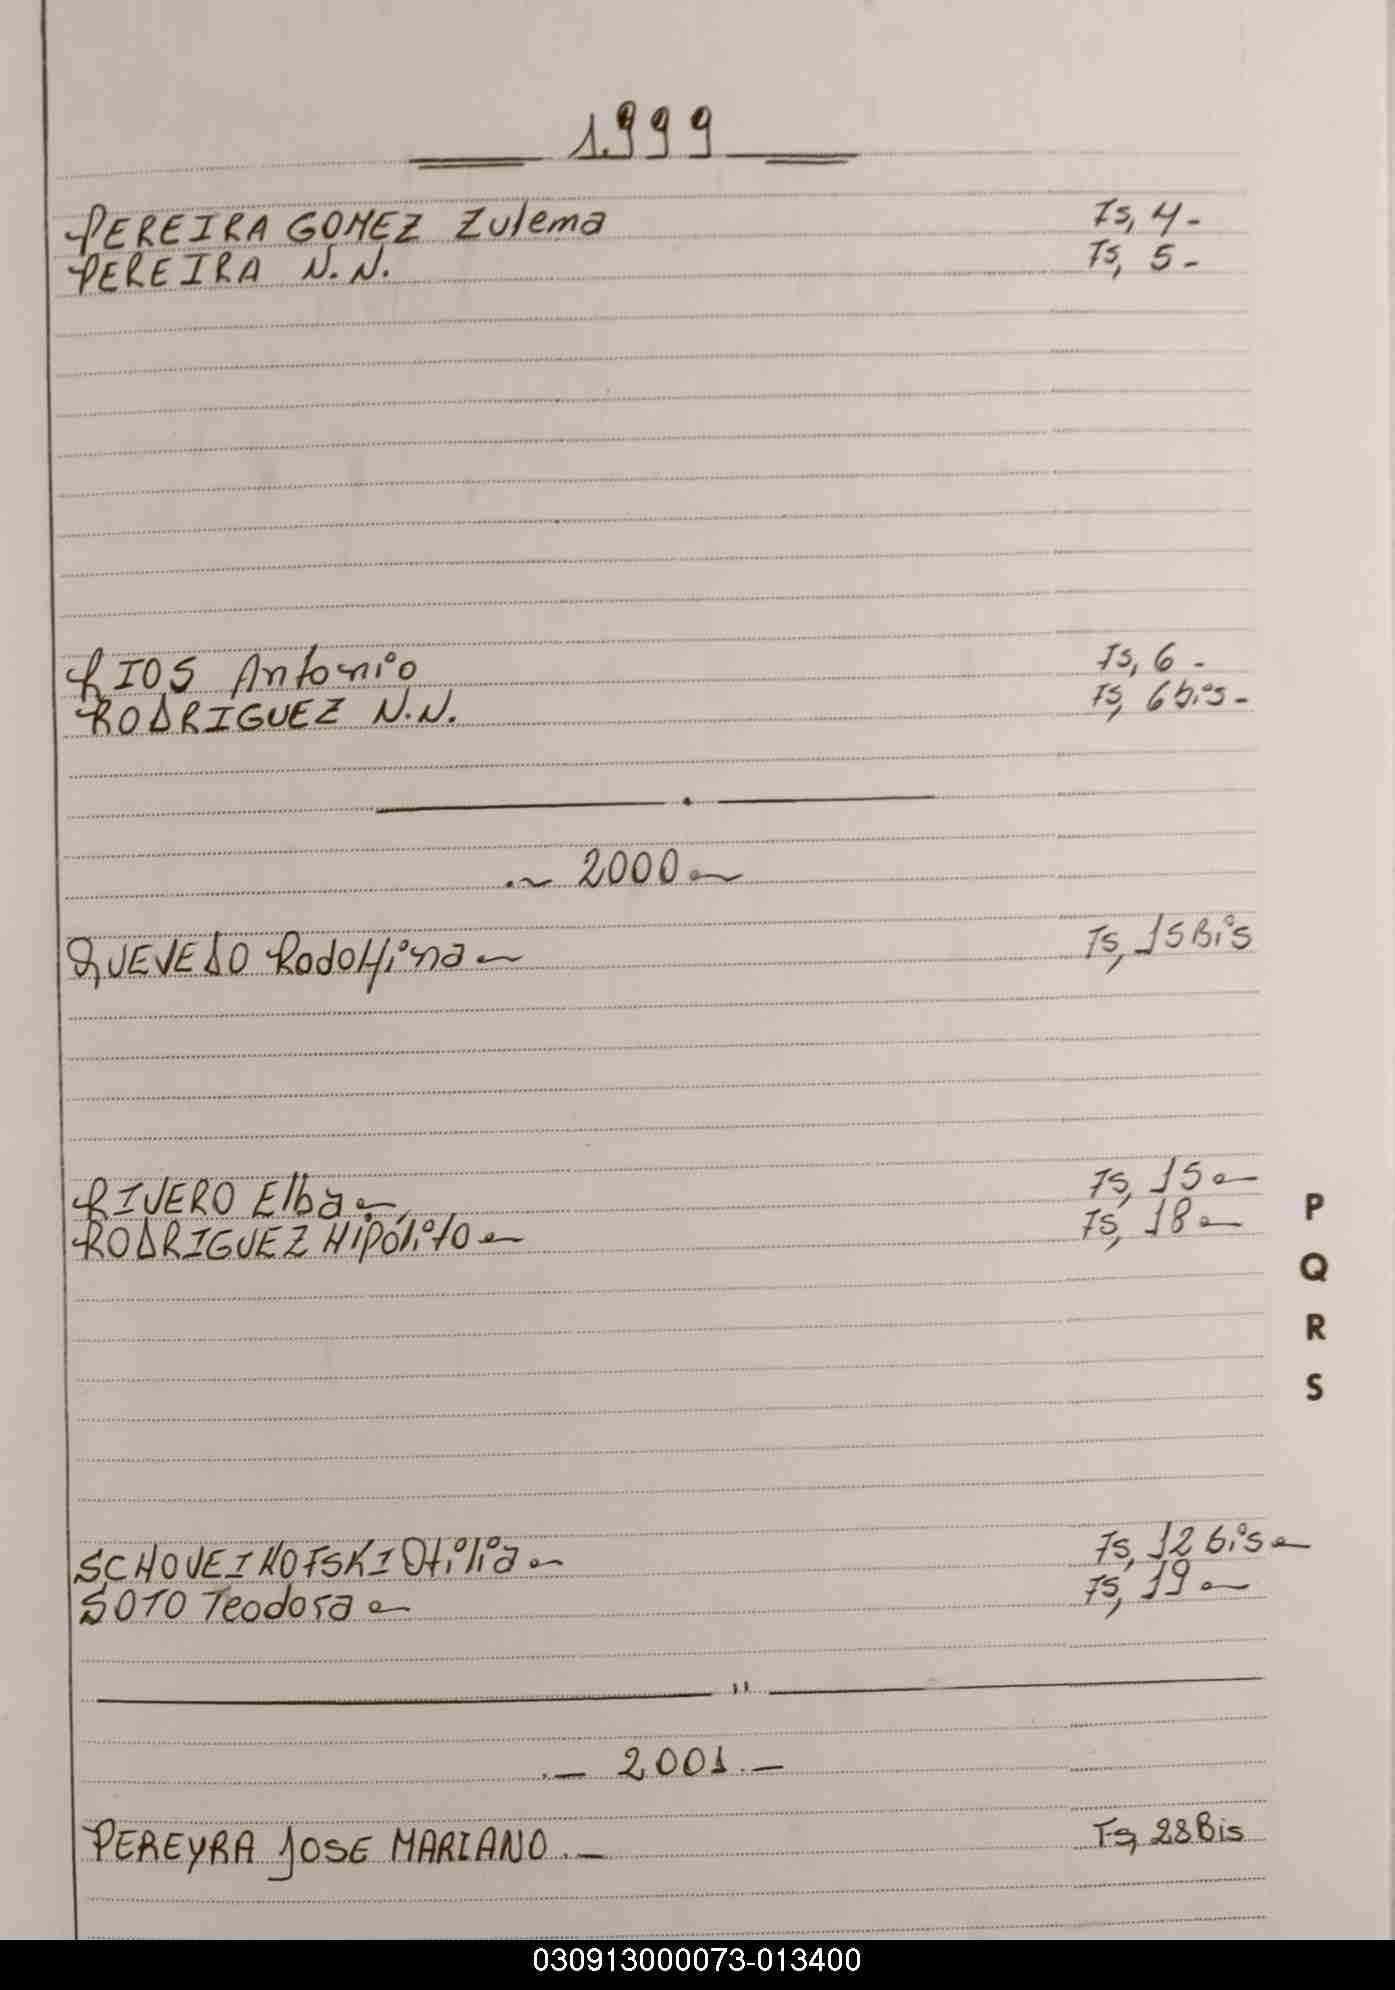 1999
PEREIRA GOMEZ Zulema Fs, 4 -
PEREIRA N.N. Fs, 5 -
RIOS Antonio Fs, 6 -
RODRIGUEZ N.N. Fs, 6 bis -
2000
QUEVEDO Rodolfina Fs, 15 Bis
RIVERO Elba Fs, 15
RODRIGUEZ Hipólito Fs, 18
P
Q
R
S
SCHOVEIHOFSKI Otilia Fs, 12 bis
SOTO Teodora Fs, 19
.- 2001.-
PEREYRA JOSE MARIANO.- Fs, 28 Bis
030913000073-013400